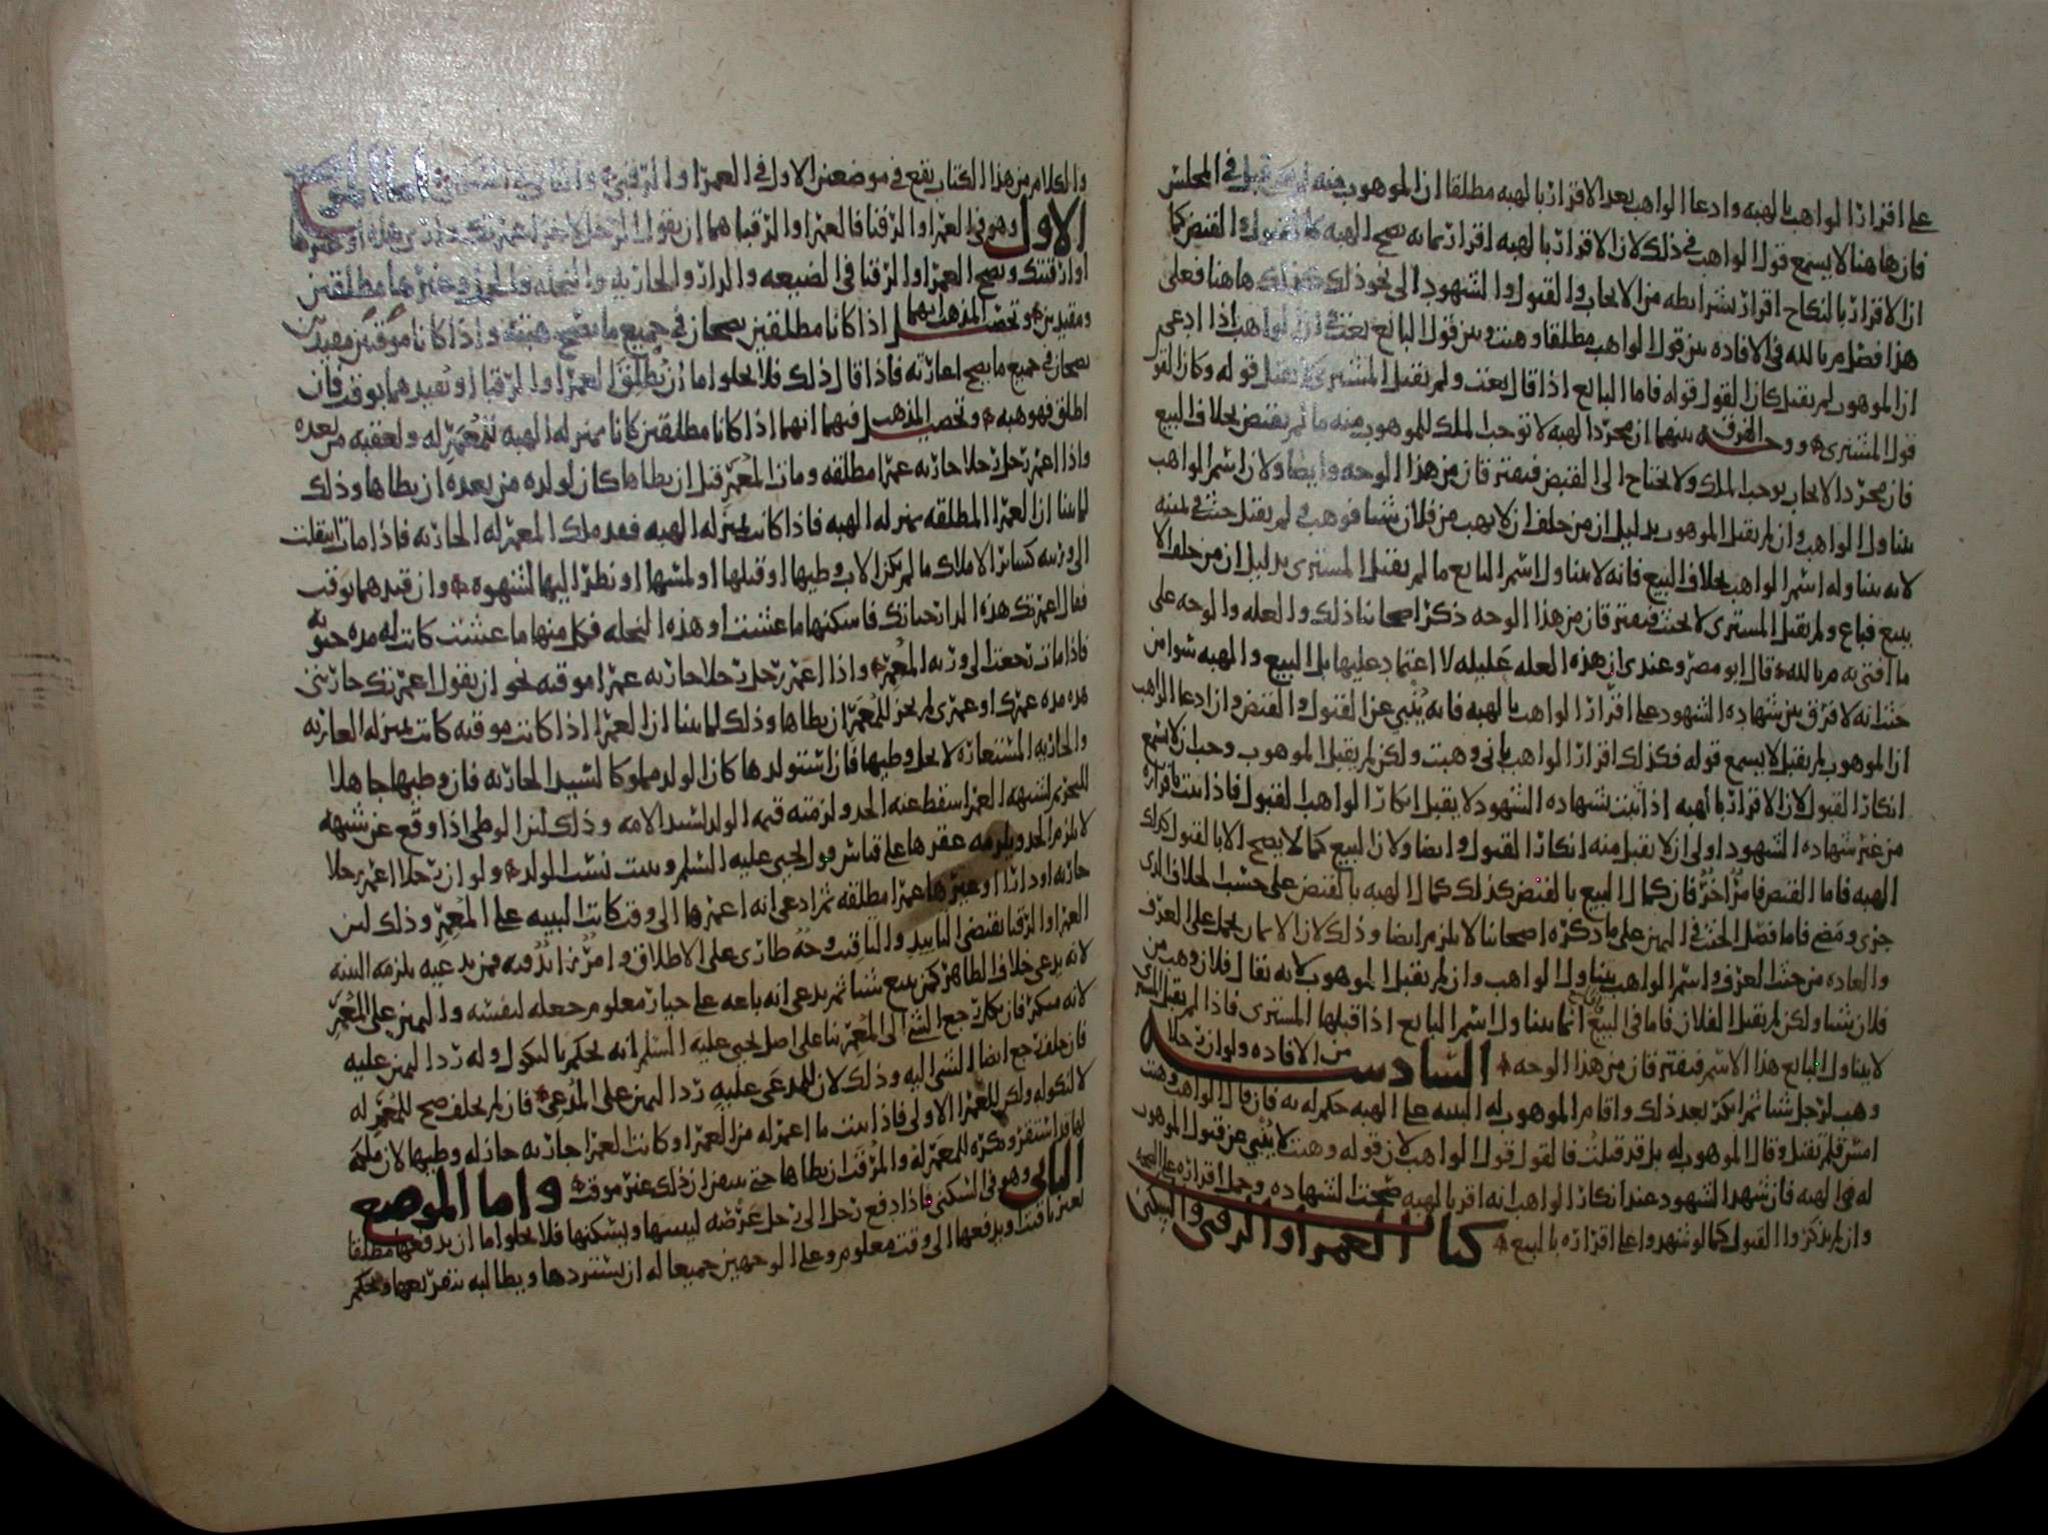 على اقرار الواهب بالهبه وادعا الواهب بعد الاقرار بالهبه مطلقا ان الموهوب منه لم يقبل في المجلس
فان هاهنا لا يسمع قول الواهب في ذلك لان الاقرار بالهبه اقرار بما به تصح الهبه كالقبول والقبض كما
ان الاقرار بالنكاح اقرار بشرائطه من الايجاب والقبول والشهود الى نحو ذلك كذلك هاهنا فعلى
هذا فصل م بالله في الافاده بين قول الواهب مطلقا وهبت وبين قول البائع بعت في ان الواهب اذا ادعى
ان الموهوب لم يقبل كان القول قوله فاما البائع اذا قال بعت ولم يقبل المشتري لا يقبل قوله وكان القول
قول المشتري ووجه الفرق بينهما ان مجرد الهبه لا توجب الملك للموهوب منه ما لم يقبض بخلاف البيع
فان مجرد الايجاب يوجب الملك ولا يحتاج الى القبض فيفترقان من هذا الوجه وايضا ولان اسم الواهب
يتناول الواهب وان لم يقبل الموهوب بدليل ان من حلف ان لا يهب من فلان شيئا فوهب فلم يقبل حنث في يمينه
لانه يتناوله اسم الواهب بخلاف البيع فانه لا يتناول اسم البايع ما لم يقبل المشتري بدليل ان من حلف الا
يبيع فباع ولم يقبل المشتري لا يحنث فيفترقان من هذا الوجه ذكر اصحابنا ذلك والعله والوجه على
ما افتى به م بالله قال ابو مضر وعندي ان هذه العله عليله لا اعتماد عليها بل البيع والهبه سوا من
حيث انه لا فرق بين شهاده الشهود على اقرار الواهب بالهبه فانه ينبي عن القبول والقبض وان ادعا الواهب
ان الموهوب لم يقبل لا يسمع قوله فكذلك اقرار الواهب باني وهبت ولكن لم يقبل الموهوب وجب ان لا يسمع
انكار القبول لان الاقرار بالهبه اذا ثبت بشهاده الشهود لا يقبل انكار الواهب القبول فاذا ثبت باقراره
من غير شهاده الشهود اولى ان لا يقبل منه انكار القبول وايضا ولان البيع كما لا يصح الا بالقبول كذلك
الهبه فاما القبض فامر اخر فان كمال البيع بالقبض كذلك كمال الهبه بالقبض على حسب الخلاف الذي
جرى ومضى فاما فصل الحنث في اليمين على ما ذكره اصحابنا لا يلزم ايضا وذلك لان الايمان يحمل على العرف
والعاده من حيث العرف واسم الواهب يتناول الواهب وان لم يقبل الموهوب لانه يقال فلان وهب من
فلان شيئا ولكن لم يقبل الفلان فاما في البيع انما يتناول اسم البايع اذا قبلها المشتري فاذا لم يقبل المشتري
لا يتناول البائع هذا الاسم فيفترقان من هذا الوجه السادسه من الافاده ولو ان رجلا
وهب لرجل شيئا ثم انكر بعد ذلك واقام الموهوب له البينه على الهبه حكم له به فان قال الواهب وهبت
امس فلم تقبل وقال الموهوب له بل قد قبلت فالقول قول الواهب لان قوله وهبت لا ينبي عن قبول الموهوب
له في الهبه فان شهد الشهود عند انكار الواهب انه اقر بالهبه صحت الشهاده وحمل اقراره على الصحه
وان لم يذكروا القبول كما لو شهدوا على اقراره بالبيع كتاب العمرا والرقبى والسكنى
والكلام من هذا الكتاب يقع في موضعين الاول في العمرا والرقبى والثاني في السكنى اما الموضع
الاول وهو في العمرا والرقبا فالعمرا والرقبا هما ان يقول الرجل لاخر اعمرتك داري هذه او غيرها
او ارقبتك وتصح العمرا والرقبا في الضيعه والدار والجاريه والنخله والحرز وغيرها مطلقتين
ومقيدين وتحصيل المذهب انهما اذا كانا مطلقين يصحان في جميع ما تصح هبته واذا كانا موقتين مقيدين
يصحان في جميع ما يصح اعارته فاذا قال ذلك فلا يخلوا اما ان يطلق العمرا والرقبا او يقيدهما بوقت فان
اطلق فهو هبه وتحصيل المذهب فيهما انهما اذا كانا مطلقين كانا بمنزله الهبه للمعمر له ولعقبه من بعده
واذا اعمر رجل رجلا جاريه عمرا مطلقه ومات المعمر قبل ان يطاها كان لولده من بعده ان يطاها وذلك
لما بينا ان العمرا المطلقه بمنزله الهبه فاذا كانت بمنزله الهبه فقد ملك المعمر له الجاريه فاذا مات انتقلت
الى ورثته كسائر الاملاك ما لم يكن الاب وطيها او قبلها او لمسها او نظر اليها لشهوه وان قيدهما بوقت
فقال اعمرتك هذه الدار حياتك فاسكنها ما عشت او هذه النخله فكل منها ما عشت كانت له مده حيوته
فاذا مات رجعت الى ورثه المعمر واذا اعمر رجل رجلا جاريه عمرا موقته نحو ان يقول اعمرتك جاريتي
هذه مده عمرك او عمري لم يجز للمعمر ان يطاها وذلك لما بينا ان العمرا اذا كانت موقته كانت بمنزله العاريه
والجاريه المستعاره لا يحل وطيها فان استولدها كان الولد مملوكا لسيد الجاريه فان وطيها جاهلا
للتحريم لشبهه العمرا سقط عنه الحد ولزمته قيمه الولد لسيد الامه وذلك لان الوطي اذا وقع عن شبهه
لا يلزم الحد ويلزمه عقرها على قياس قول يحيى عليه السلم ويثبت نسب الولد ولو ان رجلا اعمر رجلا
جاريه او دارا او غيرها عمرا مطلقه ثم ادعى انه اعمرها الى وقت كانت البينه على المعمر وذلك لان
العمرا والرقبا تقتضي التاييد والتاقيت وجه طارى على الاطلاق وامر زايد فيه فمن يدعيه يلزمه البينه
لانه يدعي خلاف الظاهر كمن يبيع شيئا ثم يدعي انه باعه على خيار معلوم جعله لنفسه واليمين على المعمر
لانه منكر فان نكل رجع الشي الى المعمر بنا على اصل يحيى عليه السلم انه يحكم بالنكول وله رد اليمين عليه
فان حلف رجع ايضا الشي اليه وذلك لان للمدعى عليه رد اليمين على المدعي فان لم يحلف صح للمعمر له
لا لنكوله ولكن للعمرا الاولى فاذا ثبت ما اعمر له من العمرا وكانت العمرا جاريه جاز له وطيها لان ملكه
لها قد استقر ويكره للمعمر له والمرقب ان يطاها حتى يتبين ان ذلك غير موقت واما الموضع
الثاني وهو في السكنى فاذا دفع رجل الى رجل عرصه ليبنيها ويسكنها فلا يخلوا اما ان يدفعها مطلقا
لغير باقيت او يدفعها الى وقت معلوم وعلى الوجهين جميعا له ان يستردها ويطالبه بتفريغها ويحكم